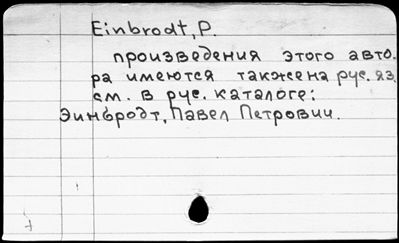 Einbrodt, P.
произведения этого авто-
ра имеются также на рус. яз.
см. в рус. каталоге:
Эинбродт, Павел Петрович.